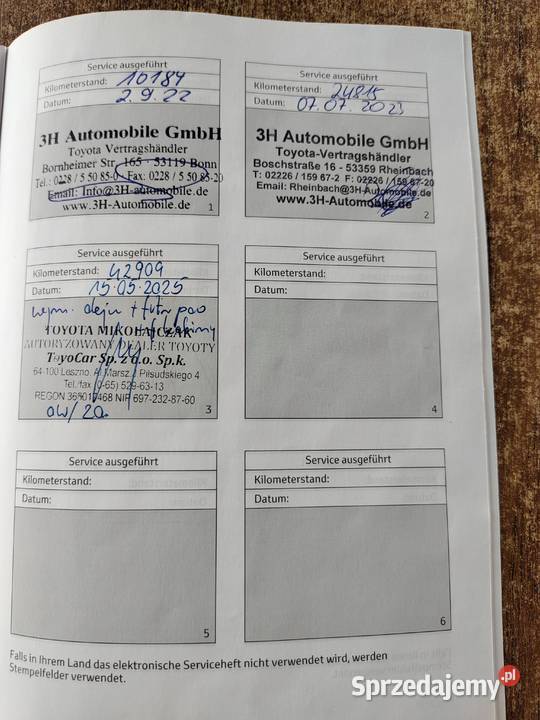 Service ausgeführt
Kilometerstand: 10184
Datum: 2.9.22
3H Automobile GmbH
Toyota Vertragshändler
Bornheimer Str. 165 - 53119 Bonn
Tel.: 0228 / 5 50 85-0 Fax: 0228 / 5 50 85-20
Email: Info@3H-automobile.de
www.3H-Automobile.de
1
Service ausgeführt
Kilometerstand: 24815
Datum: 07.07.2023
3H Automobile GmbH
Toyota-Vertragshändler
Boschstraße 16 - 53359 Rheinbach
T: 02226 / 159 67-2 F: 02226 / 159 67-20
Email: Rheinbach@3H-Automobile.de
www.3H-Automobile.de
2
Service ausgeführt
Kilometerstand: 42909
Datum: 15.05.2025
wym. oleju + filtr
TOYOTA MIKOŁAJCZAK
AUTORYZOWANY DEALER TOYOTY
ToyoCar Sp. z o.o. Sp.k.
64-100 Leszno, Al. Marsz. J. Piłsudskiego 4
Tel./fax (0-65) 529-63-13
REGON NIP 697-232-87-60
3
Service ausgeführt
Kilometerstand:
Datum:
4
Service ausgeführt
Kilometerstand:
Datum:
5
Service ausgeführt
Kilometerstand:
Datum:
6
Falls in Ihrem Land das elektronische Serviceheft nicht verwendet wird, werden
Stempelfelder verwendet.
Sprzedajemy.pl